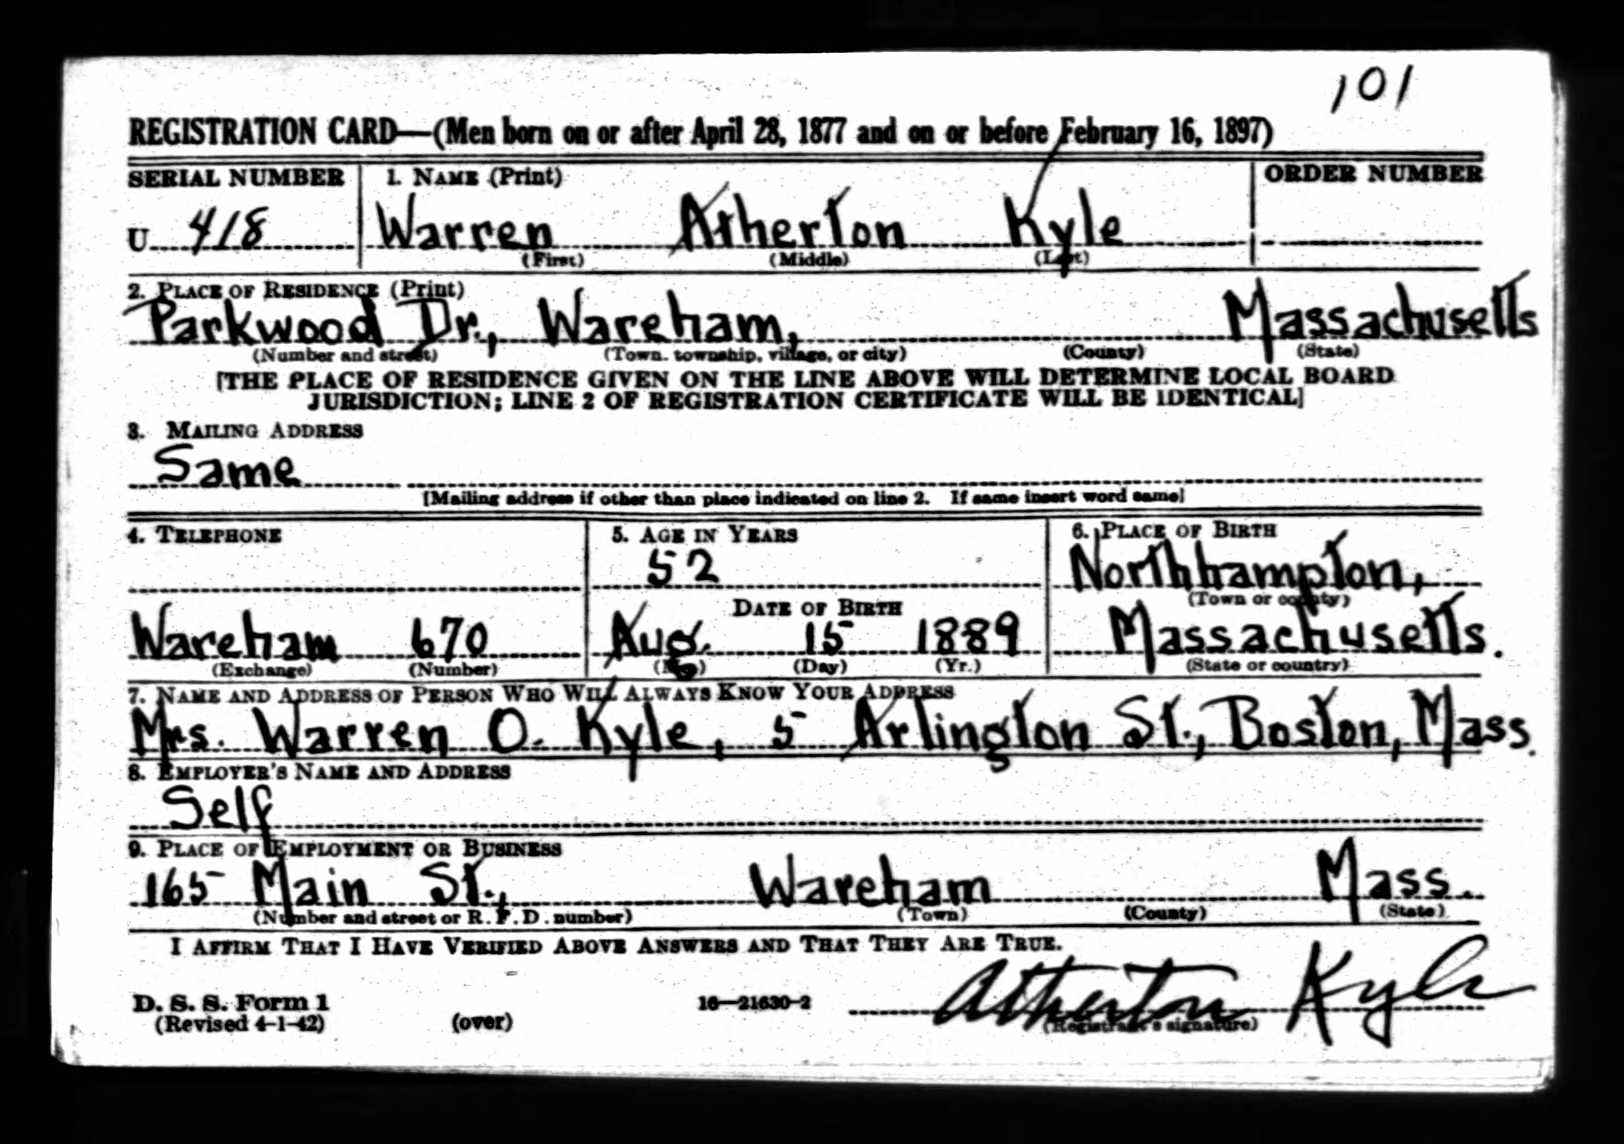 101
REGISTRATION CARD—(Men born on or after April 28, 1877 and on or before February 16, 1897)
SERIAL NUMBER 1. NAME (Print) ORDER NUMBER
U 418 Warren Atherton Kyle
(First) (Middle) (Last)
2. PLACE OF RESIDENCE (Print)
Parkwood Dr., Wareham, Massachusetts
(Number and street) (Town, township, village, or city) (County) (State)
[THE PLACE OF RESIDENCE GIVEN ON THE LINE ABOVE WILL DETERMINE LOCAL BOARD
JURISDICTION; LINE 2 OF REGISTRATION CERTIFICATE WILL BE IDENTICAL]
3. MAILING ADDRESS
Same
[Mailing address if other than place indicated on line 2. If same insert word same]
4. TELEPHONE 5. AGE IN YEARS 6. PLACE OF BIRTH
52 Northhampton,
DATE OF BIRTH (Town or county)
Wareham 670 Aug. 15 1889 Massachusetts.
(Exchange) (Number) (Mo.) (Day) (Yr.) (State or country)
7. NAME AND ADDRESS OF PERSON WHO WILL ALWAYS KNOW YOUR ADDRESS
Mrs. Warren O. Kyle, 5 Arlington St., Boston, Mass.
8. EMPLOYER'S NAME AND ADDRESS
Self
9. PLACE OF EMPLOYMENT OR BUSINESS
165 Main St., Wareham Mass.
(Number and street or R. F. D. number) (Town) (County) (State)
I AFFIRM THAT I HAVE VERIFIED ABOVE ANSWERS AND THAT THEY ARE TRUE.
D. S. S. Form 1 16—21630-2 Atherton Kyle
(Revised 4-1-42) (over) (Registrant's signature)